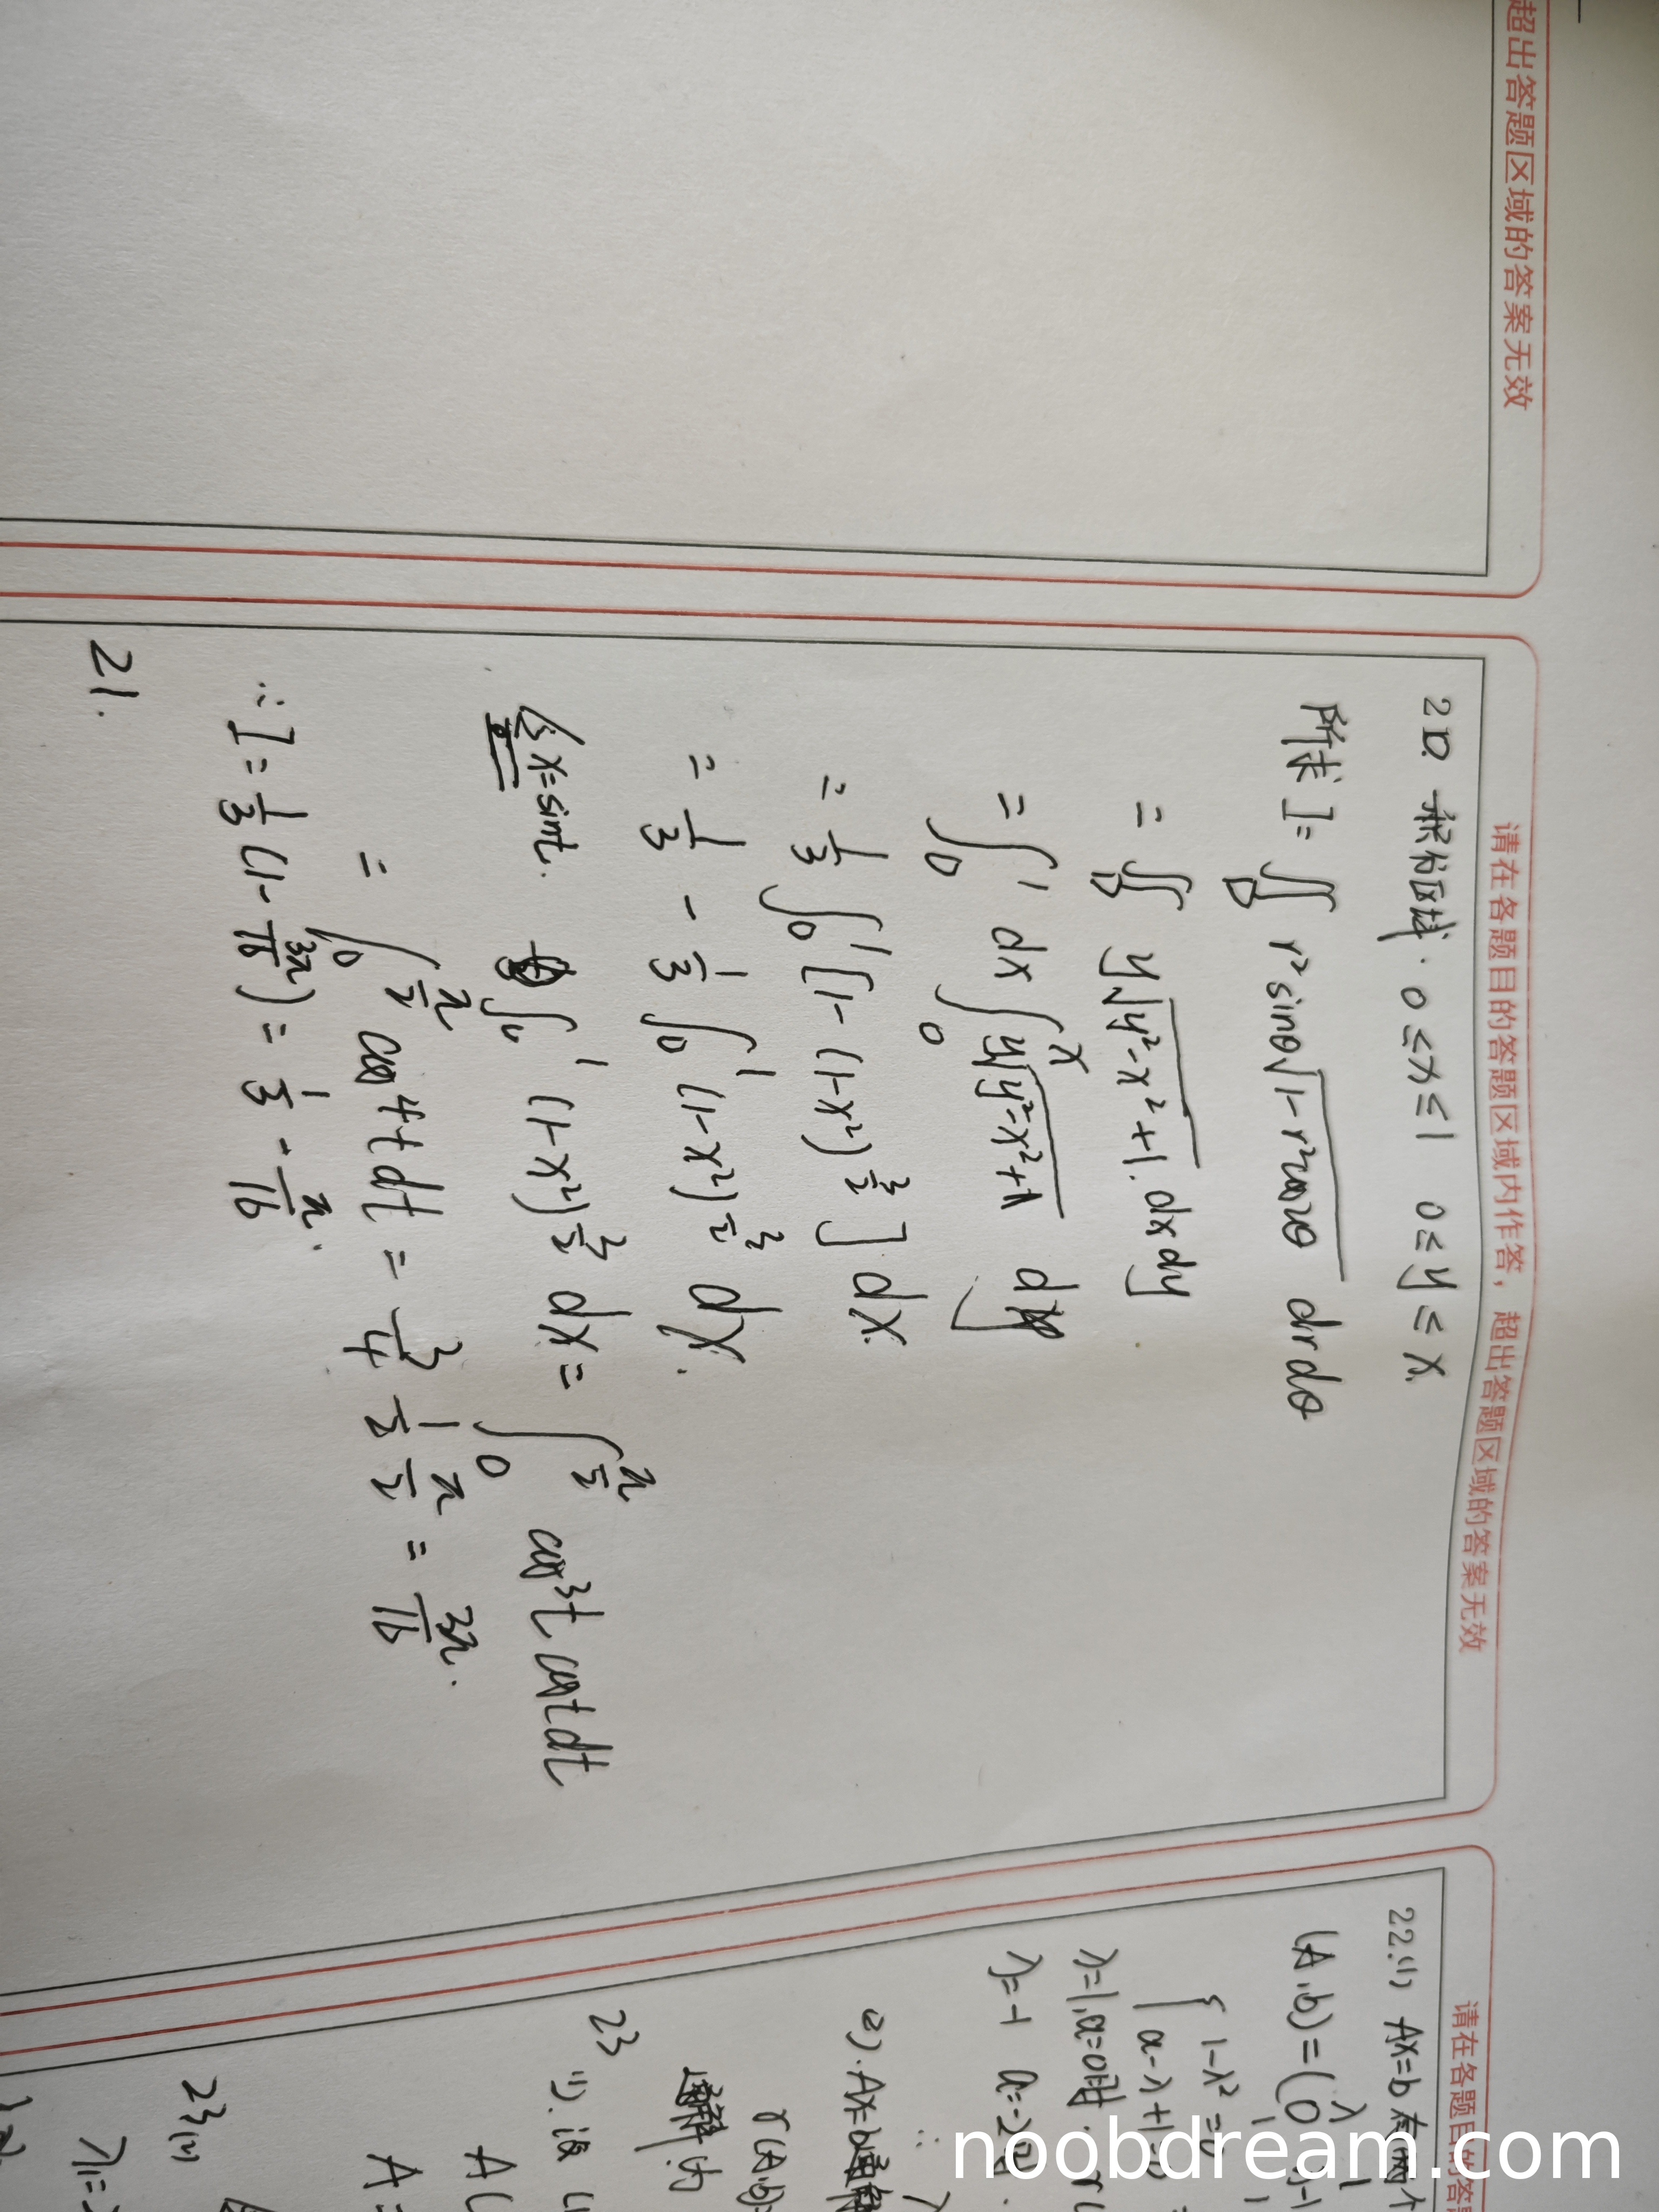 超出答题区域的答案无效
请在各题目的答题区域内作答，超出答题区域的答案无效
20. 积分区域. 0≤x≤1 0≤y≤x.
所求 I = ∬_D r²sinθ√(1-r²cos2θ) drdθ
= ∬_D y√(y²-x²+1) . dxdy
= ∫₀¹ dx ∫₀ˣ y√(y²-x²+1) dy
= 1/3 ∫₀¹ [1-(1-x²)^(3/2)] dx.
= 1/3 - 1/3 ∫₀¹ (1-x²)^(3/2) dx.
令x=sint. ∫₀¹ (1-x²)^(3/2) dx = ∫₀^(π/2) cos³t costdt
= ∫₀^(π/2) cos⁴t dt = 3/4 1/2 π/2 = 3π/16.
∴ I = 1/3 (1-3π/16) = 1/3 - π/16.
21.
请在各题目的答题
22.(1) Ax=b 有两个
(A,b)=(
{ 1-λ²=0
a-λ+1=0
λ=1,a=0时.
λ=-1 a=-2时.
(2). Ax=b
r(A,b)=
23
(1). 设
A(
A=
23(2)
λ₁=
noobdream.com